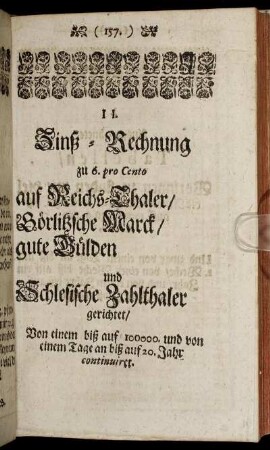 ( 157. )
II.
Zinß-Rechnung
zu 6. pro Cento
auf Reichs-Thaler/
Görlitzsche Marck/
gute Gülden
und
Schlesische Zahlthaler
gerichtet/
Von einem biß auf 100000. und von
einem Tage an biß auf 20. Jahr
continuiret.